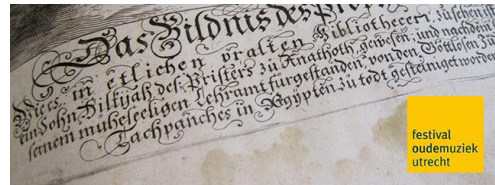 Das Bildnis des Pro
Wie es in etlichen uralten Bibliothecen, zuschen
ein Sohn Hilkijah des Pristers zu Anathoth gewesen, und nachdem
seinem muhseeligen Lehramt fürgestanden, von den Gottlosen
Tachpanches in Egypten zu todt gesteiniget worden
festival
oudemuziek
utrecht